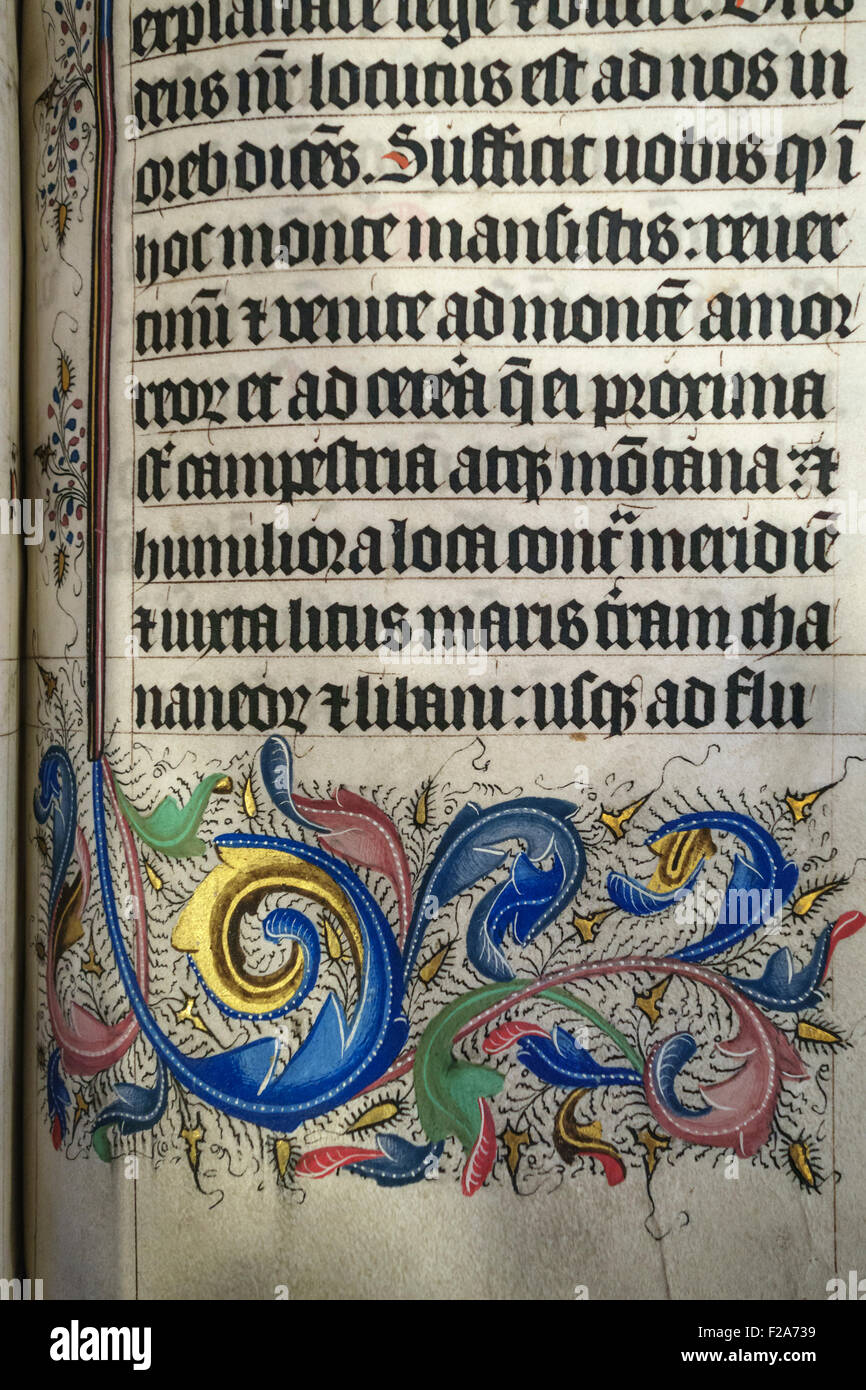 explanare lege ⁊ dicere. Dns
deus nr̄ locutus est ad nos in
oreb dicēs. Sufficit uobis ī
hoc monte mansistis: reuer
timī ⁊ venite ad montē amor
reoꝝ et ad cet̄a q̄ ei proxima
st̄ campestria atqꝫ mōtana: ⁊
humiliora loca cont̄ meridiē
⁊ iuxta litus maris t̄ram cha
naneoꝝ ⁊ libani: usqꝫ ad flu
alamy
Image ID: F2A739
www.alamy.com